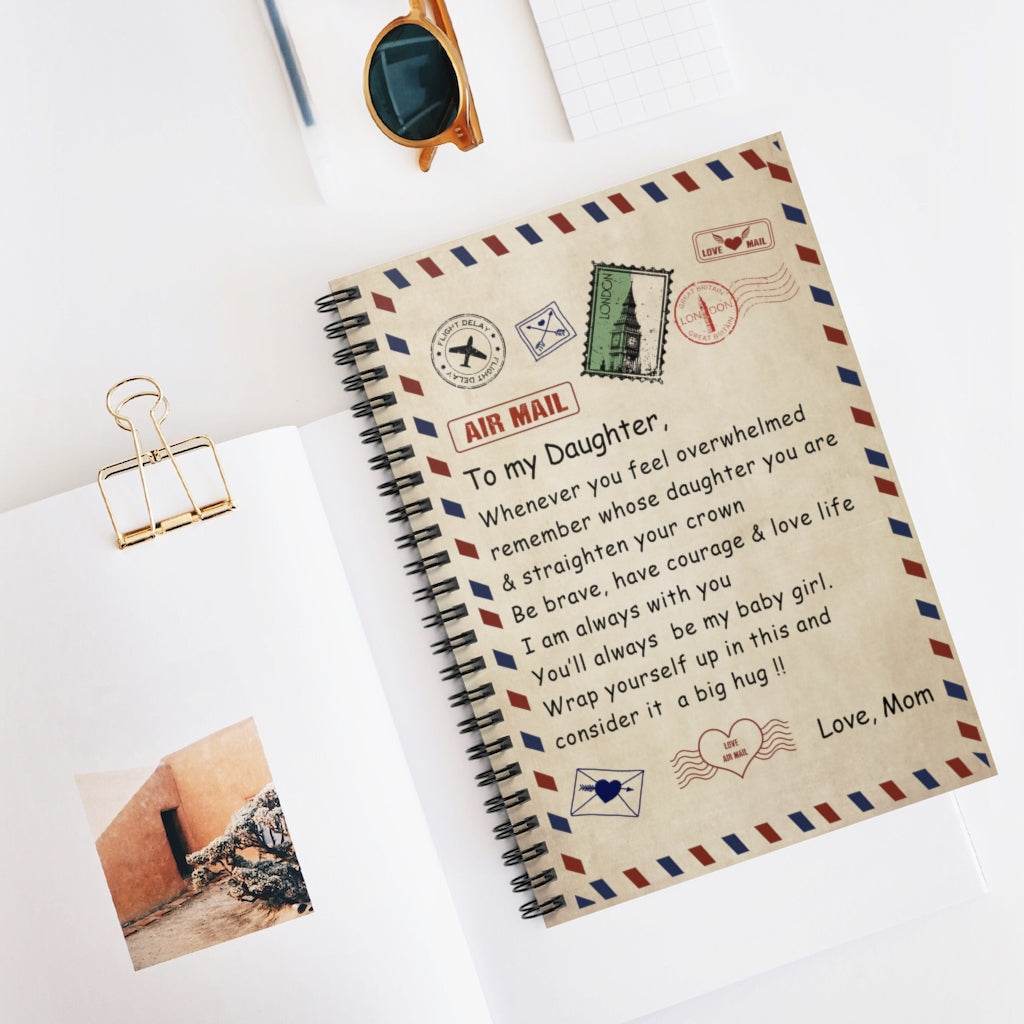 LOVE MAIL
LONDON
GREAT BRITAIN
LONDON
GREAT BRITAIN
FLIGHT DELAY
FLIGHT DELAY
AIR MAIL
To my Daughter,
Whenever you feel overwhelmed
remember whose daughter you are
& straighten your crown
Be brave, have courage & love life
I am always with you
You'll always be my baby girl.
Wrap yourself up in this and
consider it a big hug !!
Love, Mom
LOVE
AIR MAIL